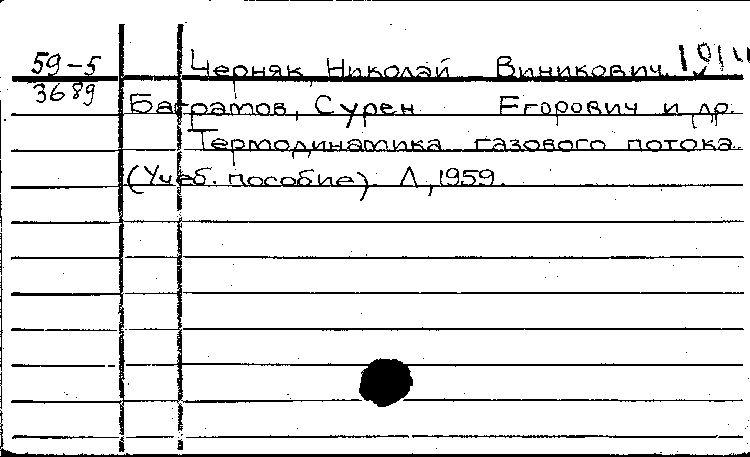 59-5 Черняк, Николай Виникович.
3689 Багратов, Сурен Егорович и др.
Термодинамика газового потока.
(Учеб. пособие) Л, 1959.